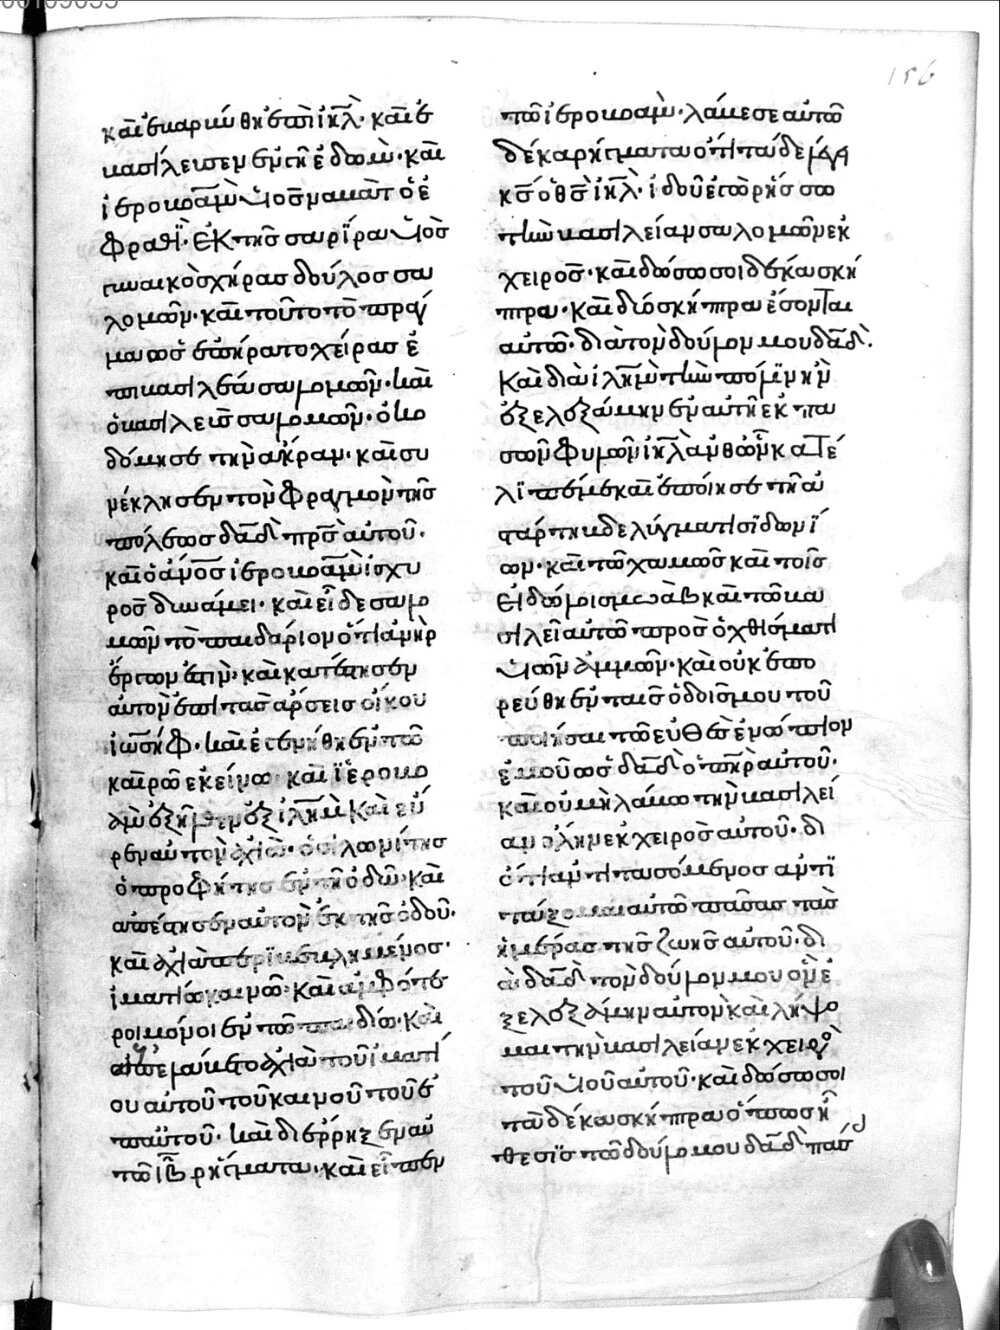 156
καὶ ἐβαρύνθη ἐπὶ ἰηλ· καὶ ἐ
βασίλευσεν ἐν τῆ ἐδώμ· καὶ
ἱεροβοὰμ υἱὸς ναβὰτ ὁ ἐ
φραθὶ· ἐκ τῆς σαρῖρα υἱὸς
γυναικὸς χήρας δοῦλος σα
λομῶν· καὶ τοῦτο τὸ πραγ
μα ὡς ἐπήρατο χεῖρας ἐ
πὶ βασιλέα σαλομῶν· καὶ
ὁ βασιλεὺς σαλομῶν· ὠκο
δόμησε τὴν ἄκραν· καὶ συ
νέκλησεν τὸν φραγμὸν τῆς
πόλεως δαδ πρς αὐτοῦ·
καὶ ὁ ανος ἱεροβοὰμ ἰσχυ
ρὸς δυνάμει· καὶ εἶδε σαλο
μῶν τὸ παιδάριον ὅτι ἀνὴρ
ἔργων ἐστὶν· καὶ κατέστησεν
αὐτὸν ἐπὶ τὰς ἄρσεις οἴκου
ἰωσὴφ· καὶ ἐγενήθη ἐν τῶ
καιρῶ ἐκείνω· καὶ ἱεροβο
ὰμ ἐξῆλθεν ἐξ ἰλημ καὶ εὗ
ρεν αὐτὸν ἀχιὰ· ὁ σιλωνίτης
ὁ προφήτης ἐν τῆ ὁδῶ· καὶ
ἀπέστησεν αὐτὸν ἐκ τῆς ὁδοῦ·
καὶ ἀχιὰ περιβεβλημένος·
ἱματίω καινῶ· καὶ ἀμφότε
ροι μόνοι ἐν τῶ παιδίω· καὶ
ἐπελάβετο ἀχιὰ τοῦ ἱματί
ου αὐτοῦ τοῦ καινοῦ τοῦ ἐ
π αὐτοῦ· καὶ διέρρηξεν αὐ
τῶ ιβ ῥήγματα· καὶ εἶπεν
τῶ ἱεροβοὰμ· λάβε σεαυτῶ
δέκα ρήγματα ὅτι τάδε λέγει
κς ὁ θς ἰηλ· ἰδοὺ ἐγὼ ρήσσω
τὴν βασιλείαν σαλομῶν ἐκ
χειρὸς· καὶ δώσω σοι δέκα σκῆ
πτρα· καὶ δύο σκῆπτρα ἔσονται
αὐτῶ· διὰ τὸν δοῦλον μου δαδ·
καὶ διὰ ἰλημ τὴν πόλιν ἣν
ἐξελεξάμην ἐν αὐτῆ ἐκ πα
σῶν φυλῶν ἰηλ ἀνθ ὧν κατέ
λιπέν με καὶ ἐποίησε τῆ ἀ
σταρτη βδελύγματι σιδωνί
ων· καὶ τῶ χαμὼς καὶ τοῖς
εἰδώλοις μωὰβ καὶ τῶ βα
σιλεῖ αὐτῶ προσοχθίσματι
υἱῶν ἀμμῶν· καὶ οὐκ ἐπο
ρεύθη ἐν ταῖς ὁδοῖς μου τοῦ
ποιῆσαι τὸ εὐθὲς ἐνώπιον
ἐμοῦ ὡς δαδ ὁ πηρ αὐτοῦ·
καὶ οὐ μὴ λάβω τὴν βασιλεί
αν ὅλην ἐκ χειρὸς αὐτοῦ· δι
ότι ἀντιτασσόμενος ἀντι
τάξομαι αὐτῶ πάσας τὰς
ἡμέρας τῆς ζωῆς αὐτοῦ· δι
ὰ δαδ τὸν δοῦλον μου ὃν ἐ
ξελεξάμην αὐτὸν καὶ λήψο
μαι τὴν βασιλείαν ἐκ χειρὸς
τοῦ υἱοῦ αὐτοῦ· καὶ δώσω σοι
τὰ δέκα σκῆπτρα ὅπως ἦ
θεσις τῶ δούλω μου δαδ πάσ